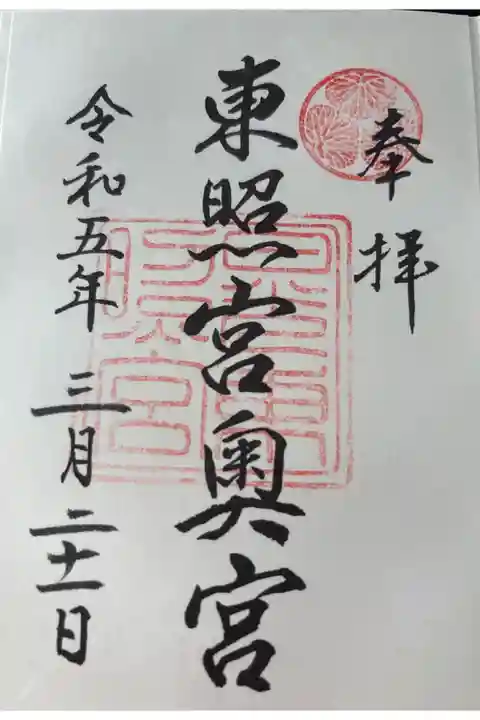 奉拝
東照宮奥宮
令和五年 三月 二十一日